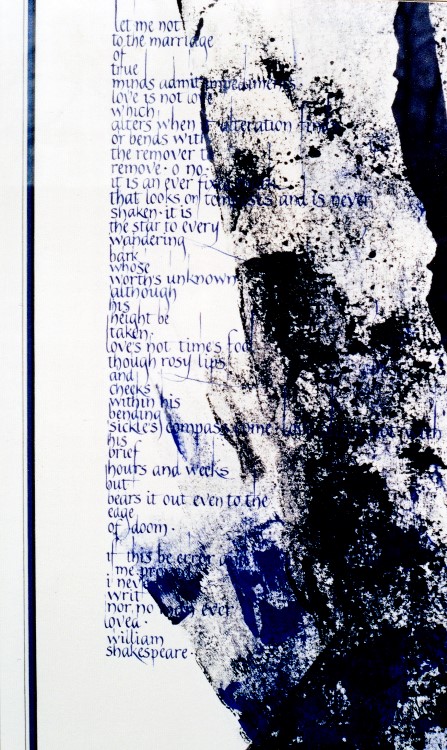 let me not
to the marriage
of
true
minds admit impediments
love is not love
which
alters when it alteration finds
or bends with
the remover to
remove · o no ·
it is an ever fixed mark
that looks on tempests and is never
shaken · it is
the star to every
wandering
bark
whose
worth's unknown
although
his
height be
taken ·
love's not time's fool
though rosy lips
and
cheeks
within his
bending
sickle's compass come
his
brief
hours and weeks
but
bears it out even to the
edge
of doom ·
if this be error
me
i never
writ
nor no man ever
loved ·
william
shakespeare ·